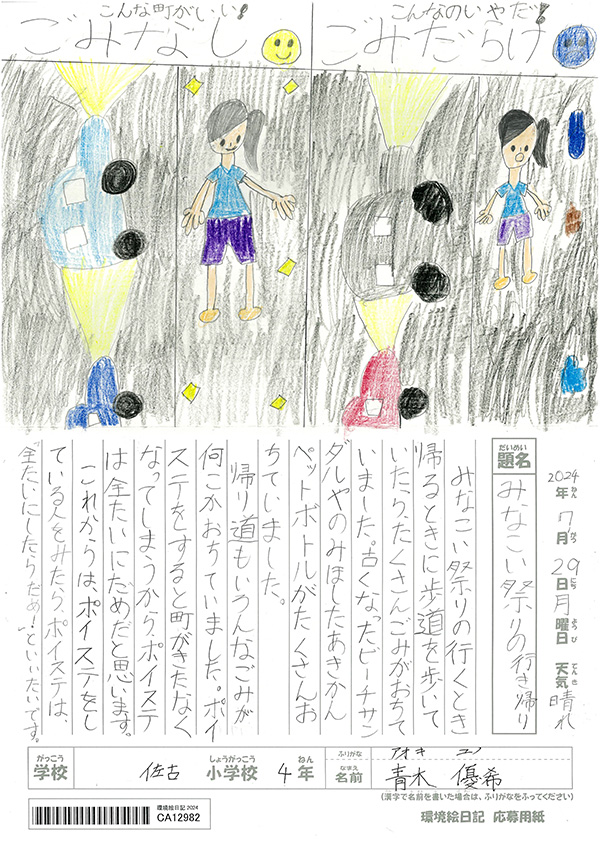 こんな町がいい!
ごみなし
こんなのいやだ!
ごみだらけ
2024年ねん7月がつ29日にち月曜日ようび 天気てんき晴れ
だいめい
題名
みなこい祭りの行き帰り
みなこい祭りの行くとき
帰るときに歩道を歩いて
いたら、たくさんごみがおちて
いました。古くなったビーチサン
ダルやのみほしたあきかん
ペットボトルがたくさんお
ちていました。
帰り道もいろんなごみが
何こかおちていました。ポイ
ステをすると町がきたなく
なってしまうから、ポイステ
は全たいにだめだと思います。
これからは、ポイステをし
ている人をみたら、ポイステは、
「全たいにしたらだめ!」といいたいです。
がっこう
学校
佐古
しょうがっこう
小学校
4
ねん
年
ふりがな
アオキ
なまえ
名前
青木 優希
(漢字で名前を書いた場合は、ふりがなをふってください)
環境絵日記 応募用紙
環境絵日記 2024
CA12982